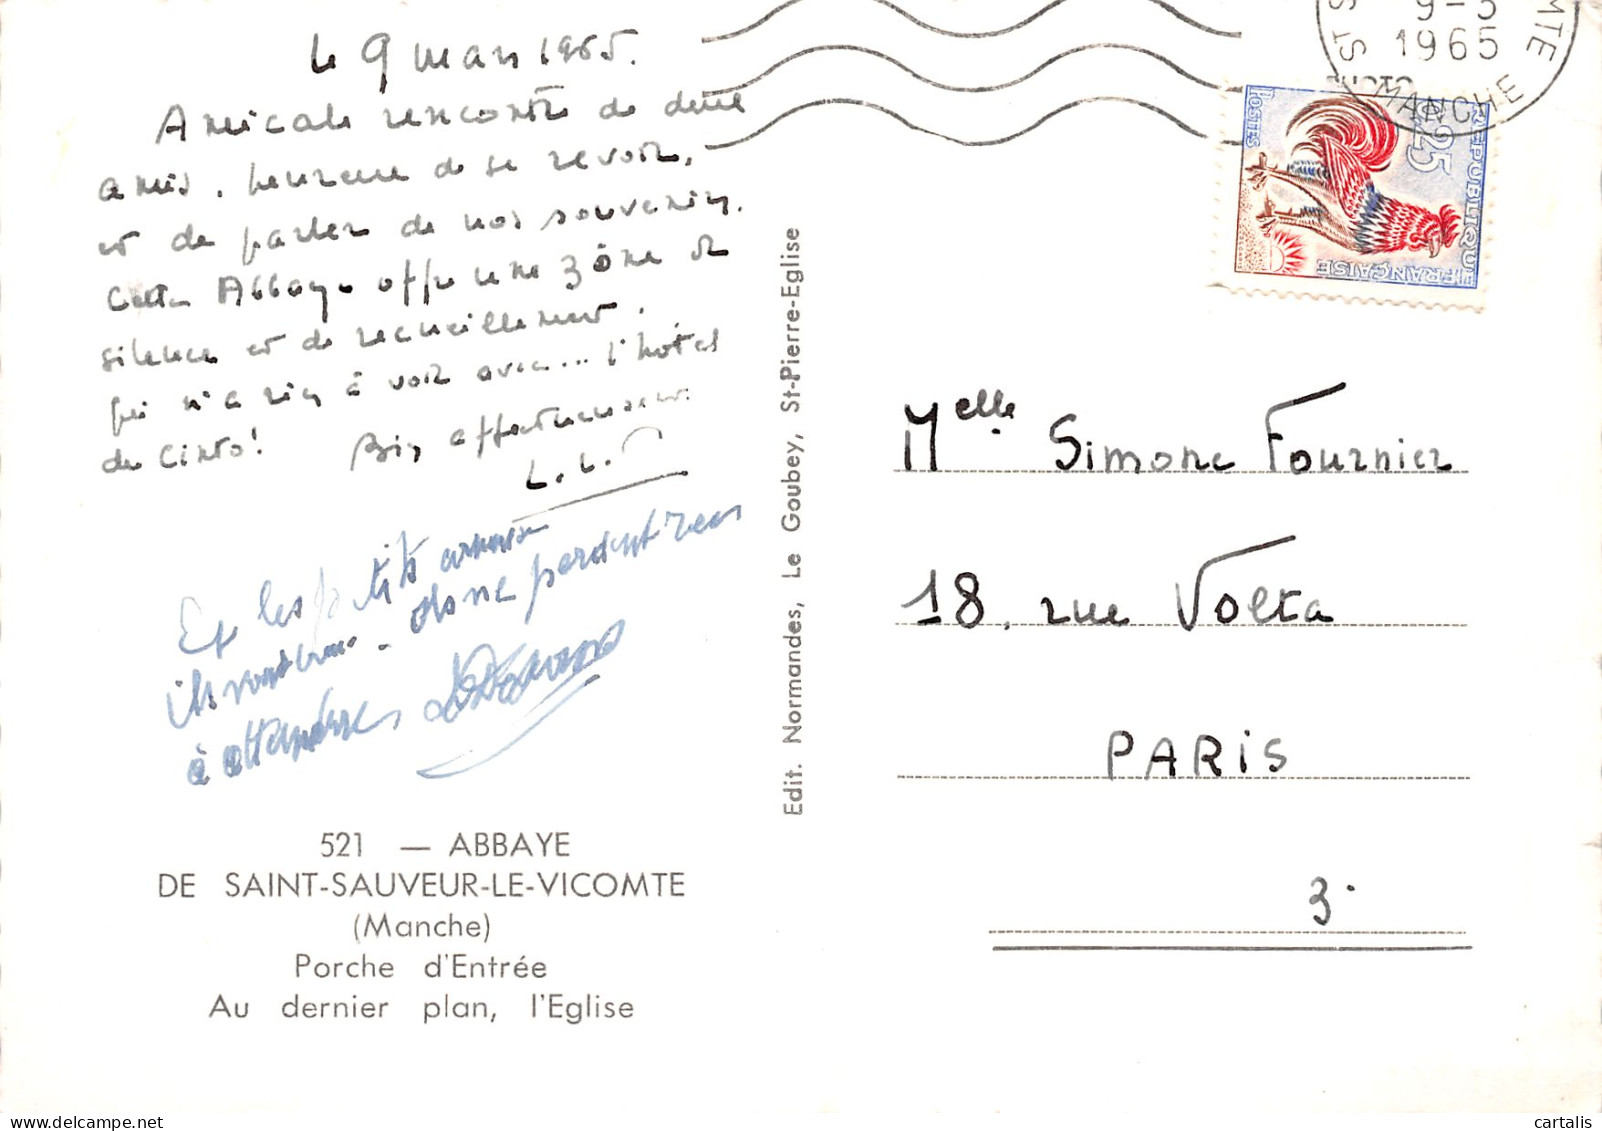 Le 9 mars 1965.
Amicale rencontre de deux
amis, heureux de se revoir,
et de parler de nos souvenirs.
Cette Abbaye offre une zône de
silence et de recueillement,
qui n'a rien à voir avec... l'hôtel
de Cinto!
Bien affectueusement
L.L.
Et les petits
ils vont - donc perdent rien
à attendre
521 — ABBAYE
DE SAINT-SAUVEUR-LE-VICOMTE
(Manche)
Porche d'Entrée
Au dernier plan, l'Eglise
Edit. Normandes, Le Goubey, St-Pierre-Eglise
9-3
1965
MANCHE
REPUBLIQUE
FRANÇAISE
0,25
POSTES
Melle Simone Fournier
18, rue Volta
PARIS
3.
cartalis